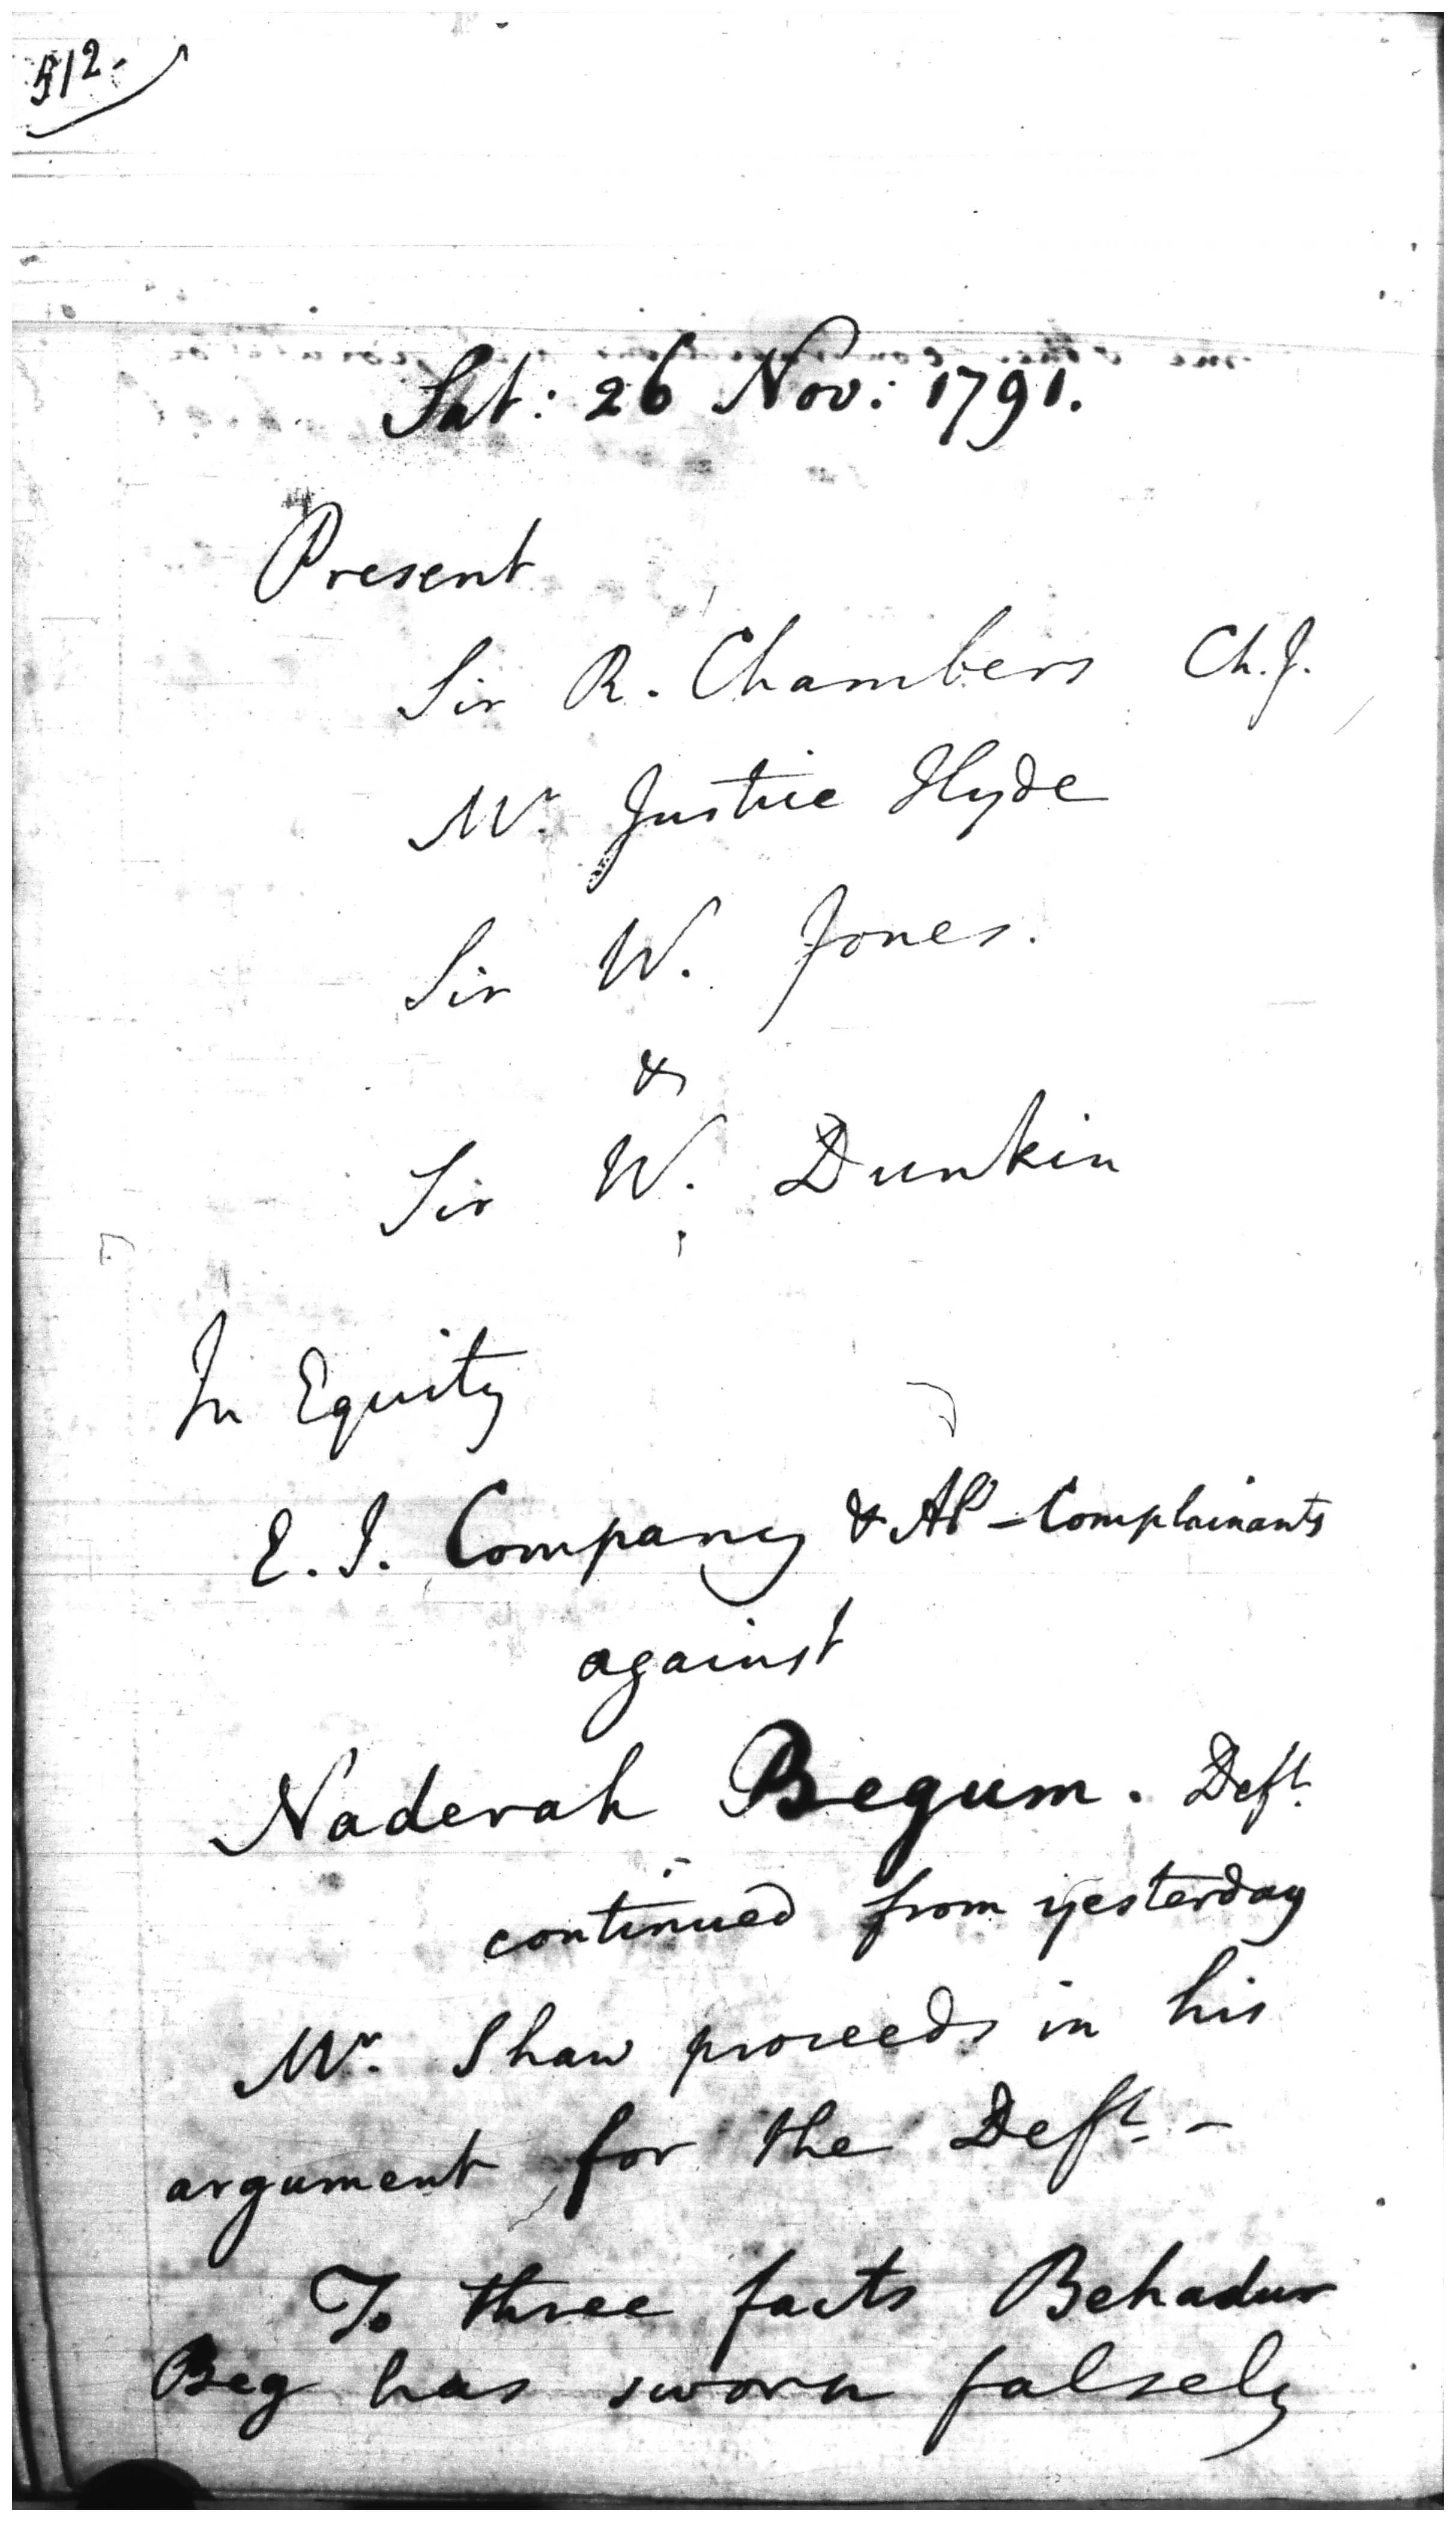 512.
Sat: 26 Nov: 1791.
Present
Sir R. Chambers Ch. J.
Mr. Justice Hyde
Sir W. Jones.
&
Sir W. Dunkin
In Equity
E. I. Company & - Complainants
against
Naderah Begum. Deft.
continued from yesterday
Mr. Shaw proceeds in his
argument for the Deft. -
To three facts Behadur
Beg has sworn falsely